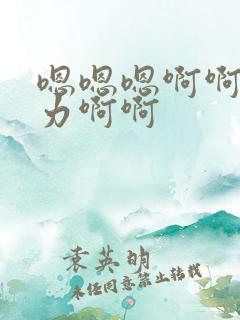 嗯嗯嗯啊啊
力啊啊
袁英明
未经同意禁止转载